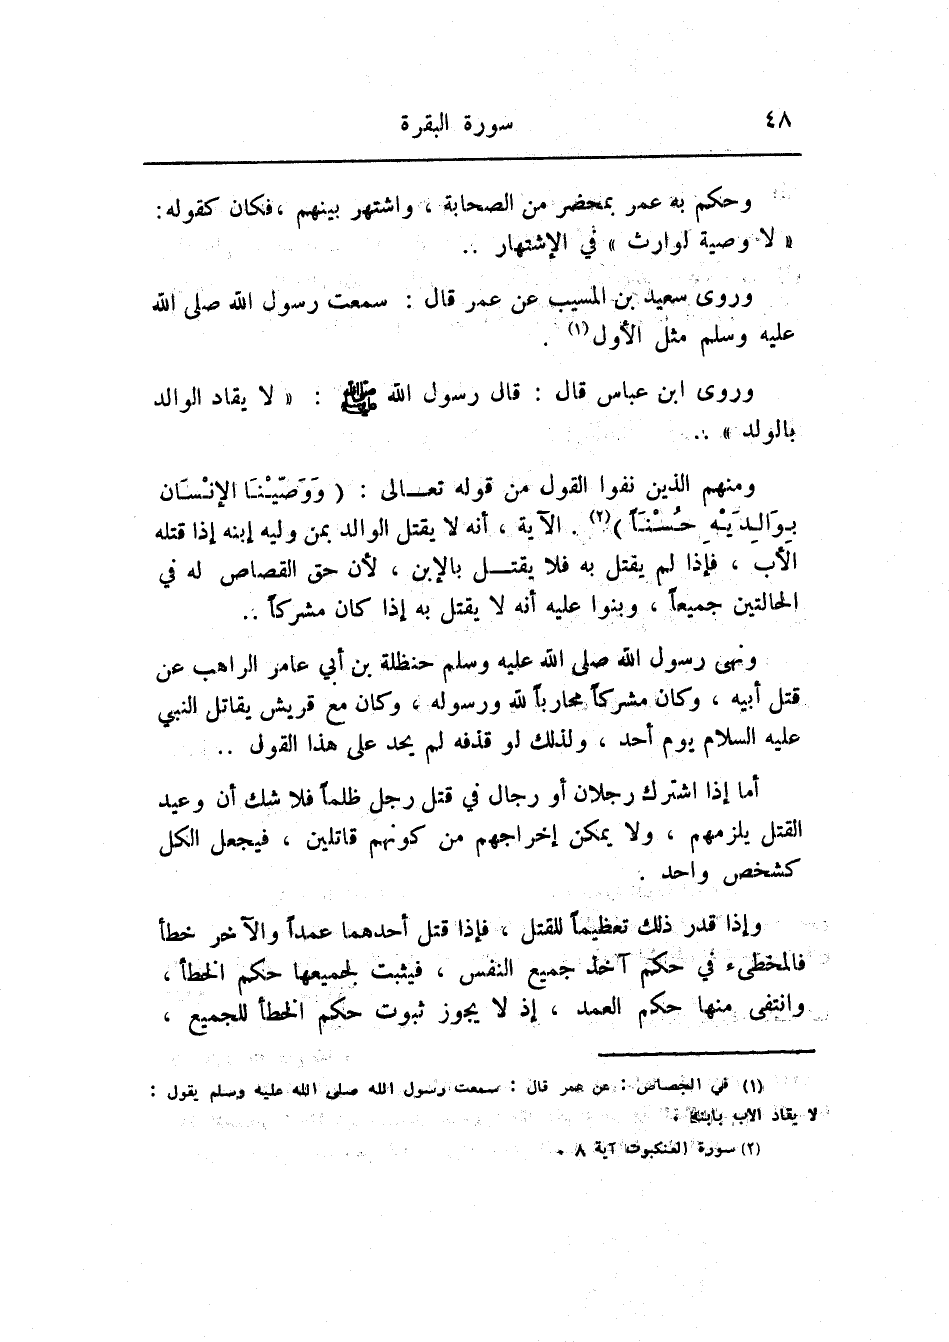 ٤٨
سورة البقرة
وحكم به عمر بمحضر من الصحابة ، واشتهر بينهم ،فكان كقوله:
« لا وصية لوارث » في الإشتهار ..
وروى سعيد بن المسيب عن عمر قال : سمعت رسول الله صلى الله
عليه وسلم مثل الأول(١) .
وروى ابن عباس قال : قال رسول الله ﷺ : « لا يقاد الوالد
بالولد » ..
ومنهم الذين نفوا القول من قوله تعـــالى : ( وَوَصَّيْنَا الإنْسَان
بِوَالِدَيْهِ حُسْنَاً )(٢) . الآية ، أنه لا يقتل الوالد بمن وليه إبنه إذا قتله
الأب ، فإذا لم يقتل به فلا يقتـــل بالإبن ، لأن حق القصاص له في
الحالتين جميعاً ، وبنوا عليه أنه لا يقتل به إذا كان مشركاً ..
ونهى رسول الله صلى الله عليه وسلم حنظلة بن أبي عامر الراهب عن
قتل أبيه ، وكان مشركاً محارباً لله ورسوله ، وكان مع قريش يقاتل النبي
عليه السلام يوم أحد ، ولذلك لو قذفه لم يحد على هذا القول ..
أما إذا اشترك رجلان أو رجال في قتل رجل ظلماً فلا شك أن وعيد
القتل يلزمهم ، ولا يمكن إخراجهم من كونهم قاتلين ، فيجعل الكل
كشخص واحد .
وإذا قدر ذلك تعظيماً للقتل ، فإذا قتل أحدهما عمداً والآخر خطأ
فالمخطىء في حكم آخذ جميع النفس ، فيثبت لجميعها حكم الخطأ ،
وانتفى منها حكم العمد ، إذ لا يجوز ثبوت حكم الخطأ للجميع ،
(١) في الجصاص : عن عمر قال : سمعت رسول الله صلى الله عليه وسلم يقول :
لا يقاد الأب بابنه .
(٢) سورة العنكبوت آية ٨ .